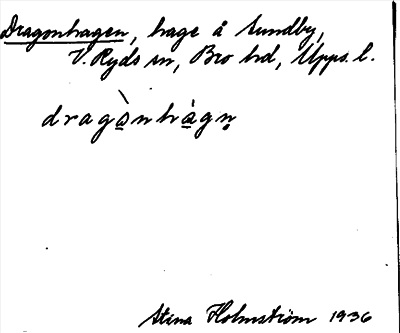 Dragonhagen, hage å Sundby,
V. Ryds sn, Bro hd, Upps. l.
dragò̲nhá̲gn̥
Stina Holmström 1936